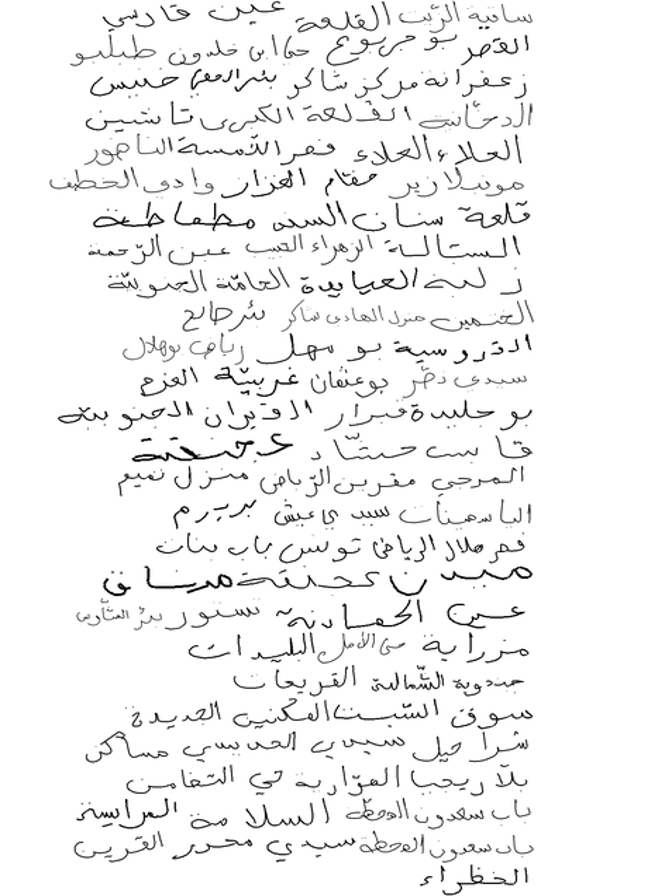 سانية الزيت القلعة عين فارسي
القصر بو مربوع حي ابن خلدون طبلبو
زعفرانة مركز شاكر بئر الحفي خنيس
الدخانية القلعة الكبرى تاشين
العلاء العلاء قصر الشمسة الناضور
مونبلازير مقام الغزاز وادي الخطف
قلعة سنان السند مطماطة
الستالة الزهراء عين الرحمة
زلبة العيايدة العامة الجنوبية
الختمين منزل الهادي شاكر بئر صالح
القروسية بو سهل رياض بوهلال
سيدي نصر بوعثمان غربية الفزع
بو جليدة قبرار القيران الجنوبية
قابس حشاد عجنقة
المرجي مقرين الرياض منزل تميم
الياسمينات سيدي عيش بريرم
قصر هلال الرياض تونس باب بنات
ميدن عجنقة مرناق
عين الحمادنة تستور بئر
مزراية حي الأمل البليدات
جندوبة الشمالية القريعات
سوق السبت المكنين الجديدة
شراحيل سيدي الحديسي مساكن
بلاريجيا الهوارية حي التضامن
باب سعدون المحطة السلامة المرايسية
باب سعدون المحطة سيدي محرز القرين
الخضراء